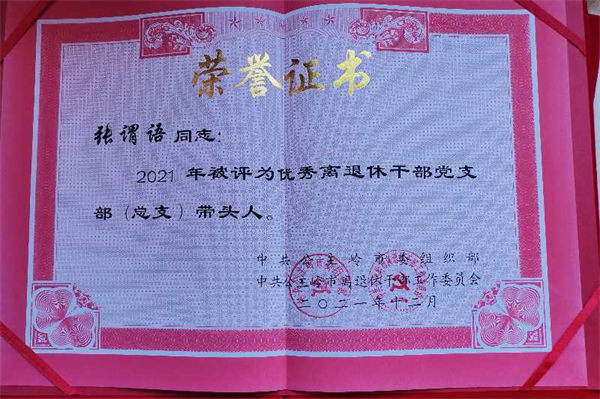 荣誉证书
张谓语同志:
2021年被评为优秀离退休干部党支
部(总支)带头人。
中共公主岭市委组织部
中共公主岭市离退休干部工作委员会
二〇二一年十二月